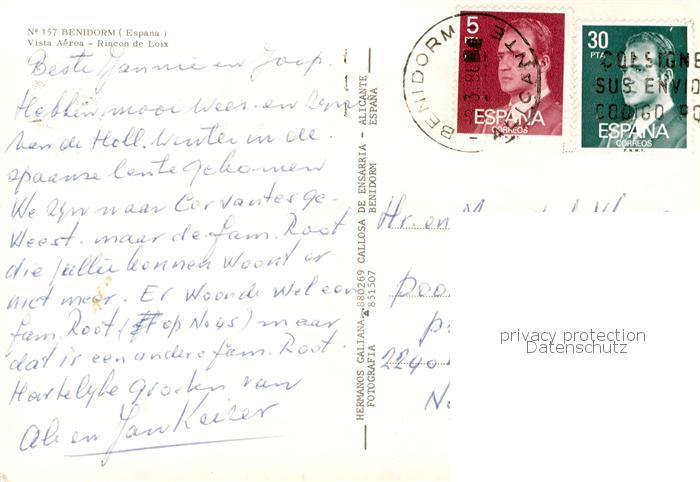 Nº 157 BENIDORM ( España )
Vista Aérea - Rincon de Loix
Beste Jannie en Joop.
Hebben mooi weer. en zijn
van de Holl. Winter in de
spaanse lente gekomen
We zijn naar Cervantes ge-
weest. maar de fam. Root
die jullie kennen woont er
niet meer. Er woonde wel een
fam. Root ( op No 45) maar
dat is een andere fam. Root.
Hartelijke groeten van
Ab en Jan
HERMANOS GALIANA 880269 CALLOSA DE ENSARRIA - ALICANTE
FOTOGRAFIA 851507 BENIDORM ESPAÑA
BENIDORM
ALICANTE
5
PTA
ESPAÑA
CORREOS
F.N.M.T.
30
PTA
ESPAÑA
CORREOS
F.N.M.T.
CONSIGNE
SUS ENVIO
CODIGO PO
Hr. en
2240
privacy protection
Datenschutz